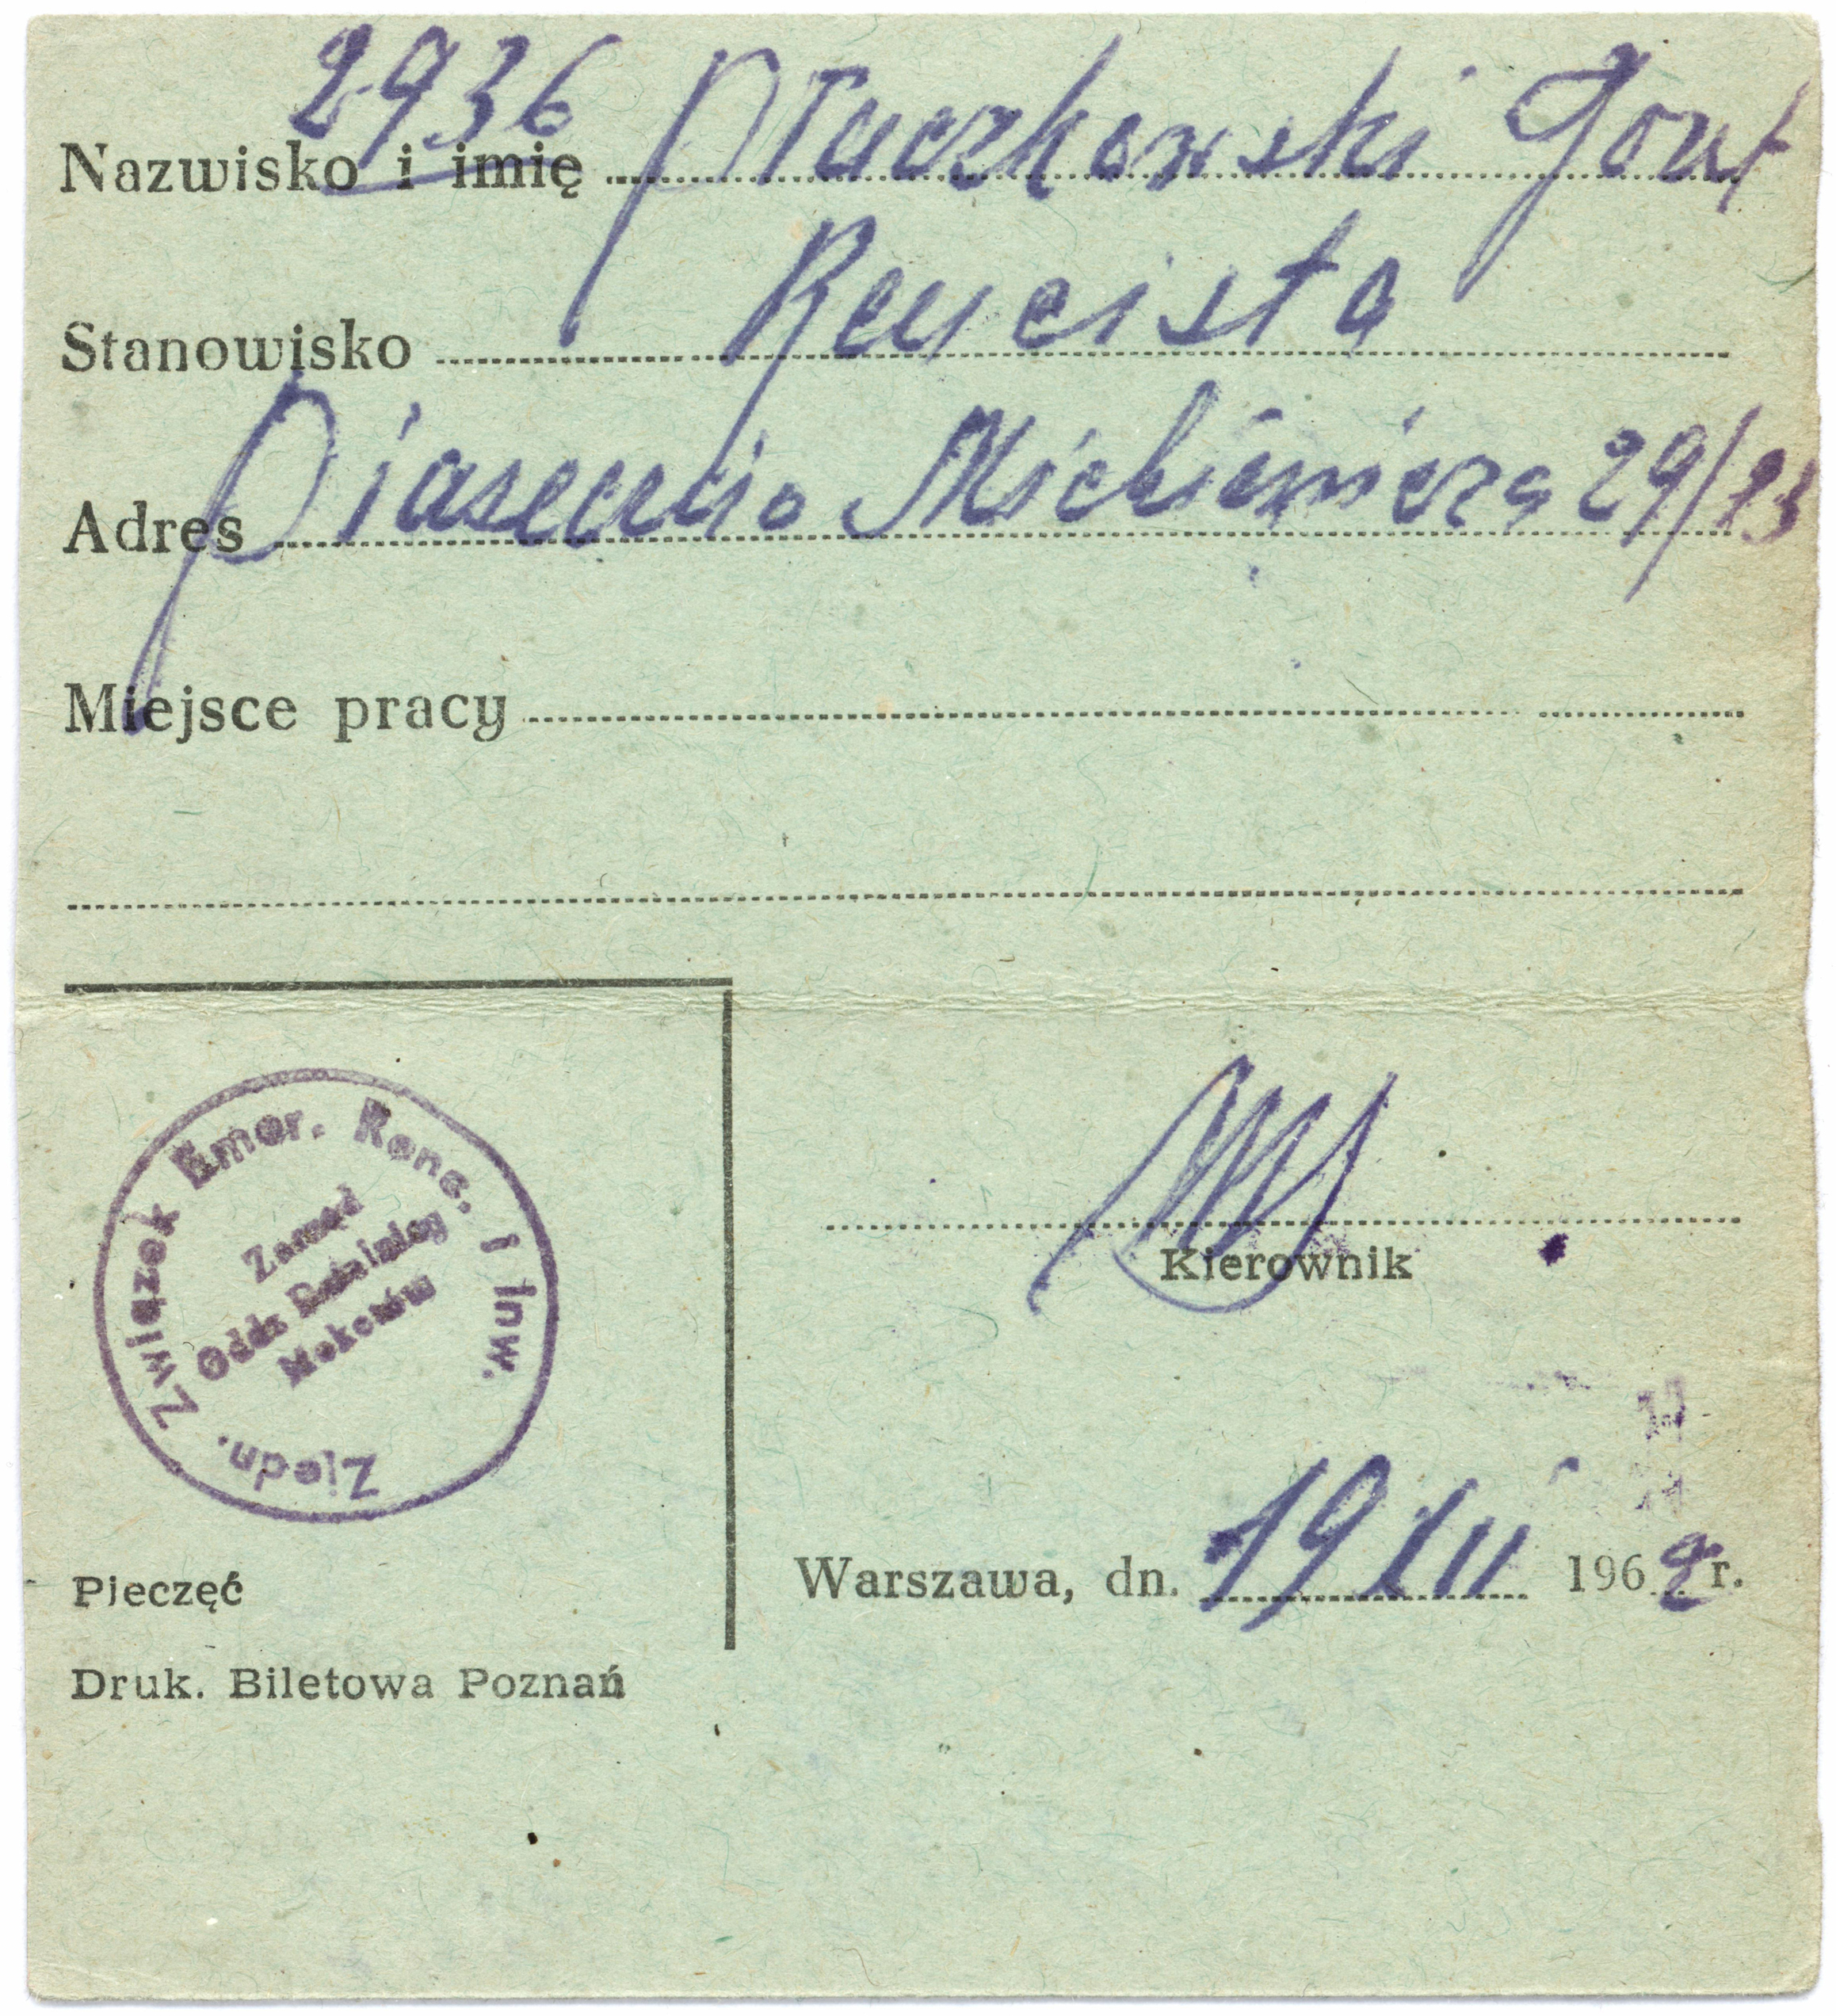 2936
Nazwisko i imię Ptaczkowski Józef
Stanowisko Rencista
Adres Piaseczno Mickiewicza 29/23
Miejsce pracy
Zjedn. Związek Emer. Renc. i Inw.
Zarząd
Oddz. Dzielnicy
Mokotów
Kierownik
Warszawa, dn. 19 III 1968 r.
Pieczęć
Druk. Biletowa Poznań